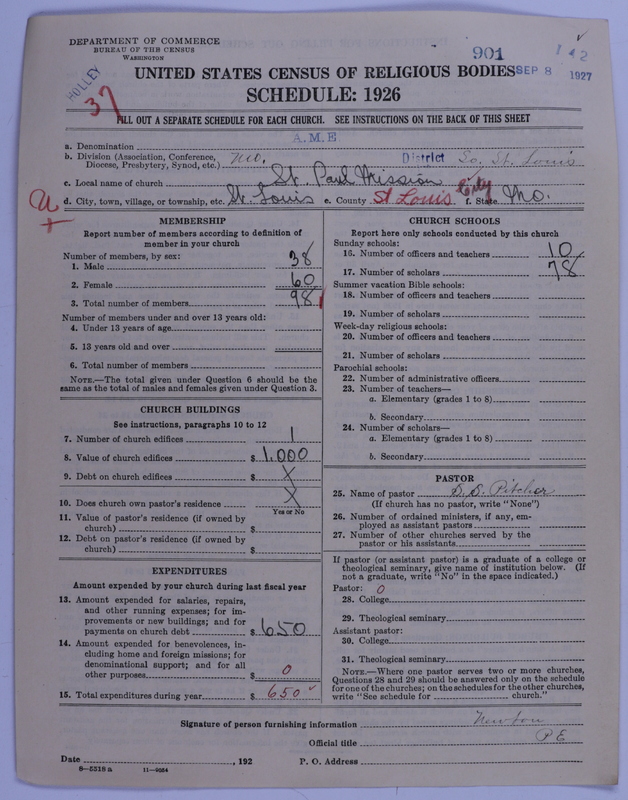 DEPARTMENT OF COMMERCE
BUREAU OF THE CENSUS
WASHINGTON
901
142
HOLLEY
37
SEP 8 1927
UNITED STATES CENSUS OF RELIGIOUS BODIES
SCHEDULE: 1926
FILL OUT A SEPARATE SCHEDULE FOR EACH CHURCH. SEE INSTRUCTIONS ON THE BACK OF THIS SHEET
a. Denomination A.M.E
b. Division (Association, Conference, Diocese, Presbytery, Synod, etc.) Mo. District So. St. Louis
c. Local name of church St. Paul Mission
d. City, town, village, or township, etc. St. Louis e. County St Louis City f. State Mo.
U
MEMBERSHIP
Report number of members according to definition of member in your church
Number of members, by sex:
1. Male 38
2. Female 60
3. Total number of members 98
Number of members under and over 13 years old:
4. Under 13 years of age
5. 13 years old and over
6. Total number of members
NOTE.—The total given under Question 6 should be the same as the total of males and females given under Question 3.
CHURCH BUILDINGS
See instructions, paragraphs 10 to 12
7. Number of church edifices 1
8. Value of church edifices $ 1.000
9. Debt on church edifices $ X
10. Does church own pastor's residence X
Yes or No
11. Value of pastor's residence (if owned by church) $
12. Debt on pastor's residence (if owned by church) $
EXPENDITURES
Amount expended by your church during last fiscal year
13. Amount expended for salaries, repairs, and other running expenses; for improvements or new buildings; and for payments on church debt $ 650
14. Amount expended for benevolences, including home and foreign missions; for denominational support; and for all other purposes $ 0
15. Total expenditures during year $ 650
CHURCH SCHOOLS
Report here only schools conducted by this church
Sunday schools:
16. Number of officers and teachers 10
17. Number of scholars 78
Summer vacation Bible schools:
18. Number of officers and teachers
19. Number of scholars
Week-day religious schools:
20. Number of officers and teachers
21. Number of scholars
Parochial schools:
22. Number of administrative officers
23. Number of teachers—
a. Elementary (grades 1 to 8)
b. Secondary
24. Number of scholars—
a. Elementary (grades 1 to 8)
b. Secondary
PASTOR
25. Name of pastor S. S. Pitcher
(If church has no pastor, write "None")
26. Number of ordained ministers, if any, employed as assistant pastors
27. Number of other churches served by the pastor or his assistants
If pastor (or assistant pastor) is a graduate of a college or theological seminary, give name of institution below. (If not a graduate, write "No" in the space indicated.)
Pastor: 0
28. College
29. Theological seminary
Assistant pastor:
30. College
31. Theological seminary
NOTE.—Where one pastor serves two or more churches, Questions 28 and 29 should be answered only on the schedule for one of the churches; on the schedules for the other churches, write "See schedule for church."
Signature of person furnishing information Newton
Official title P E
Date , 192 P. O. Address
8-5318 a 11-9054